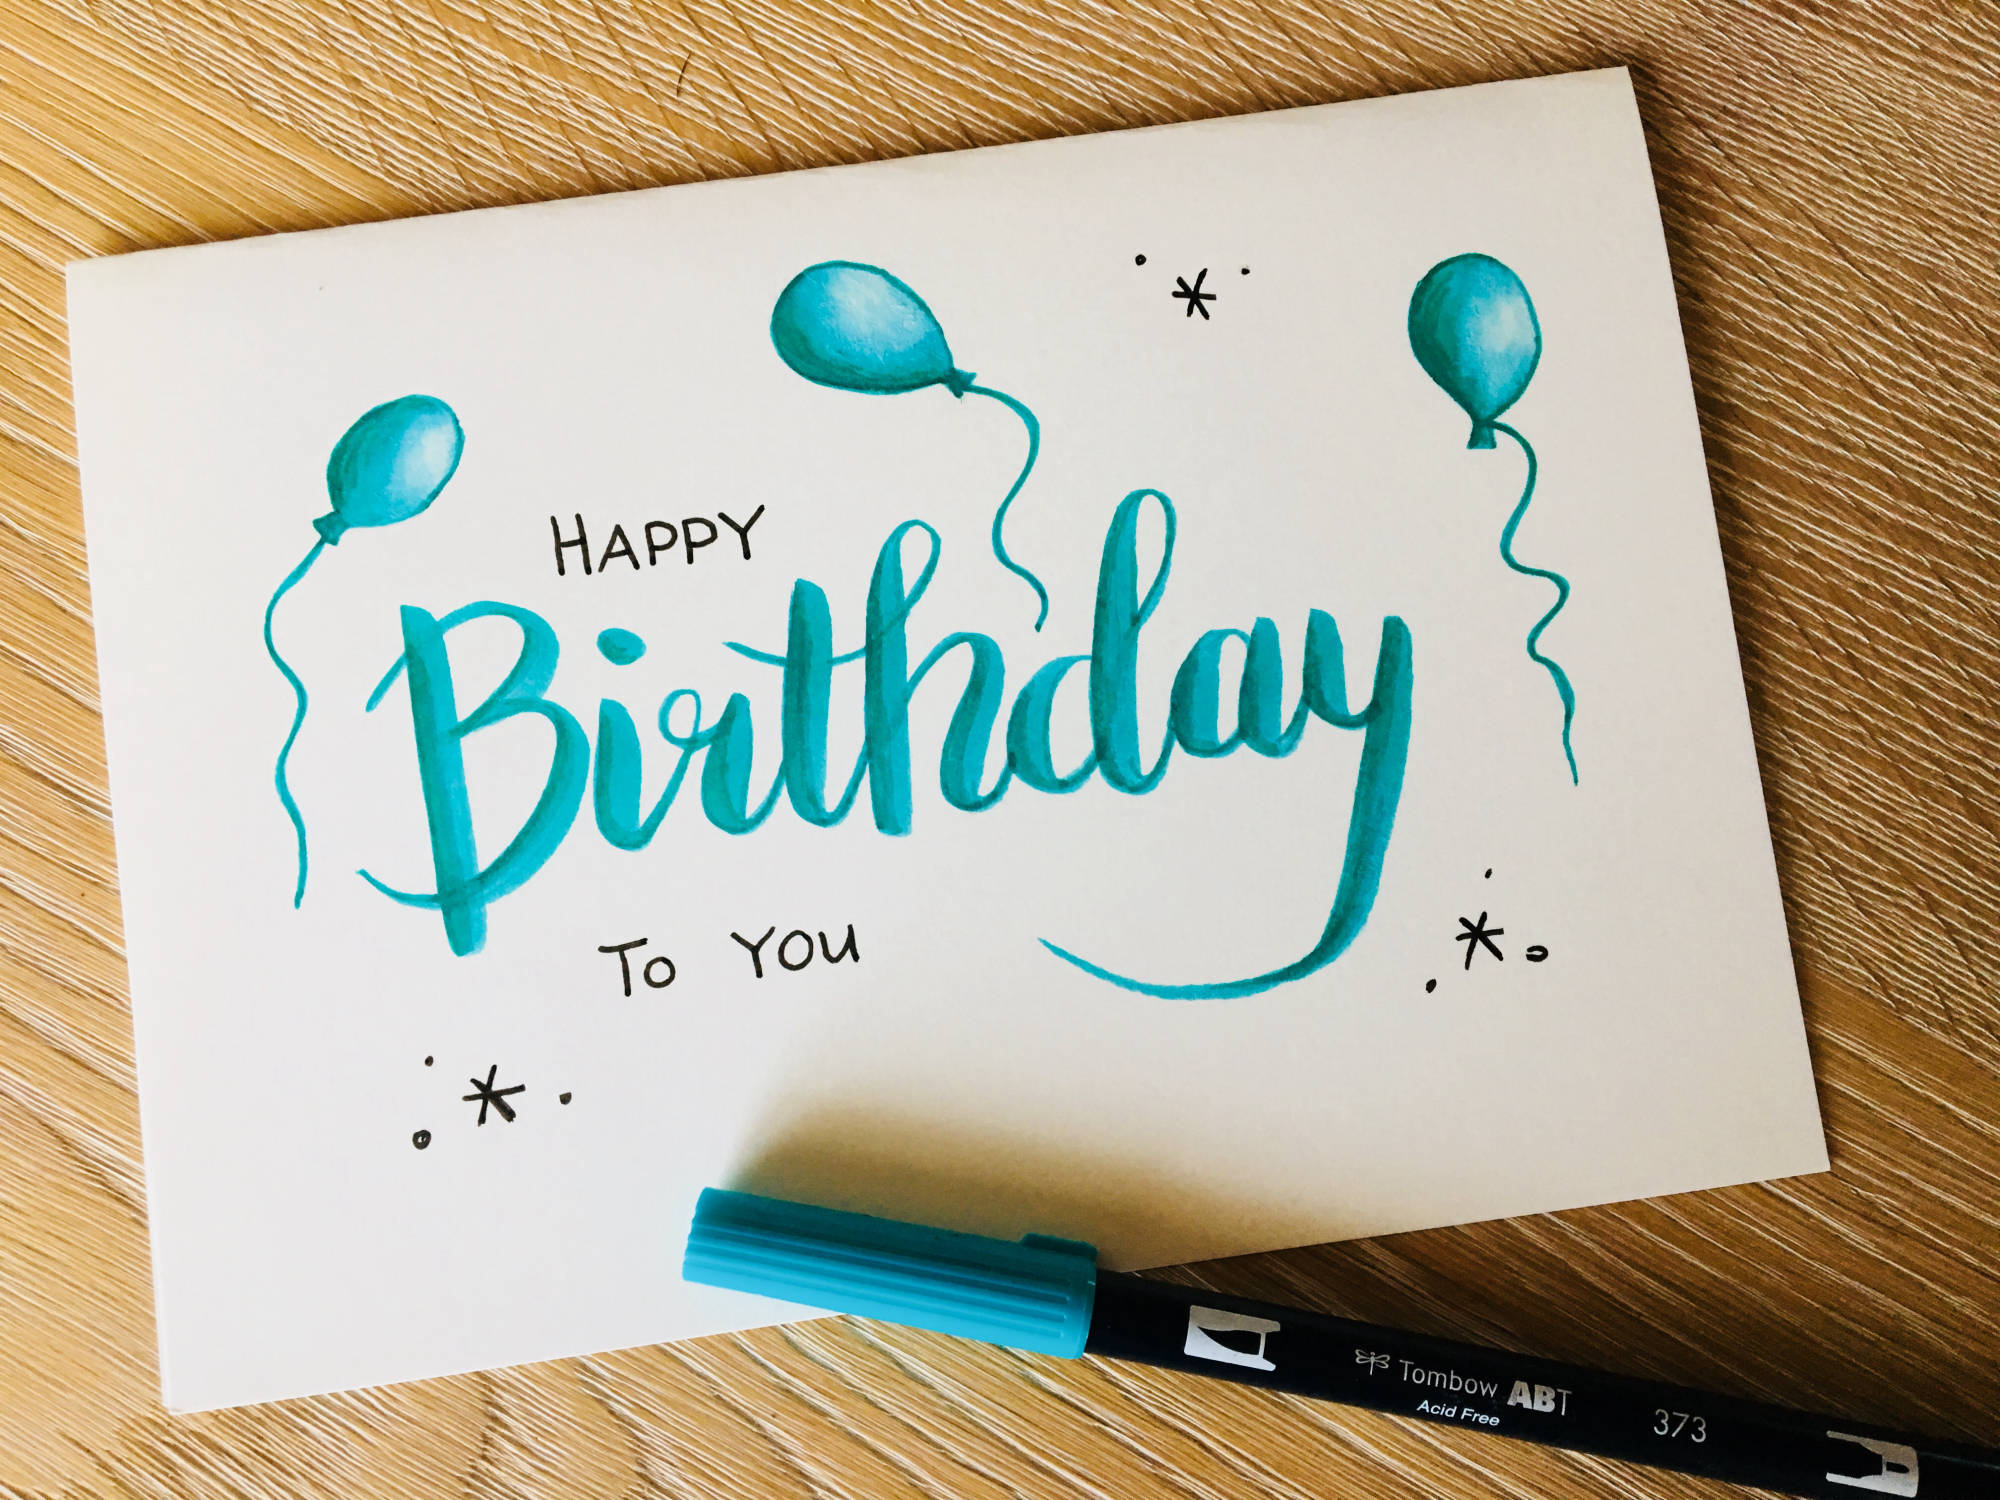 HAPPY
Birthday
To You
Tombow ABT
Acid Free
373